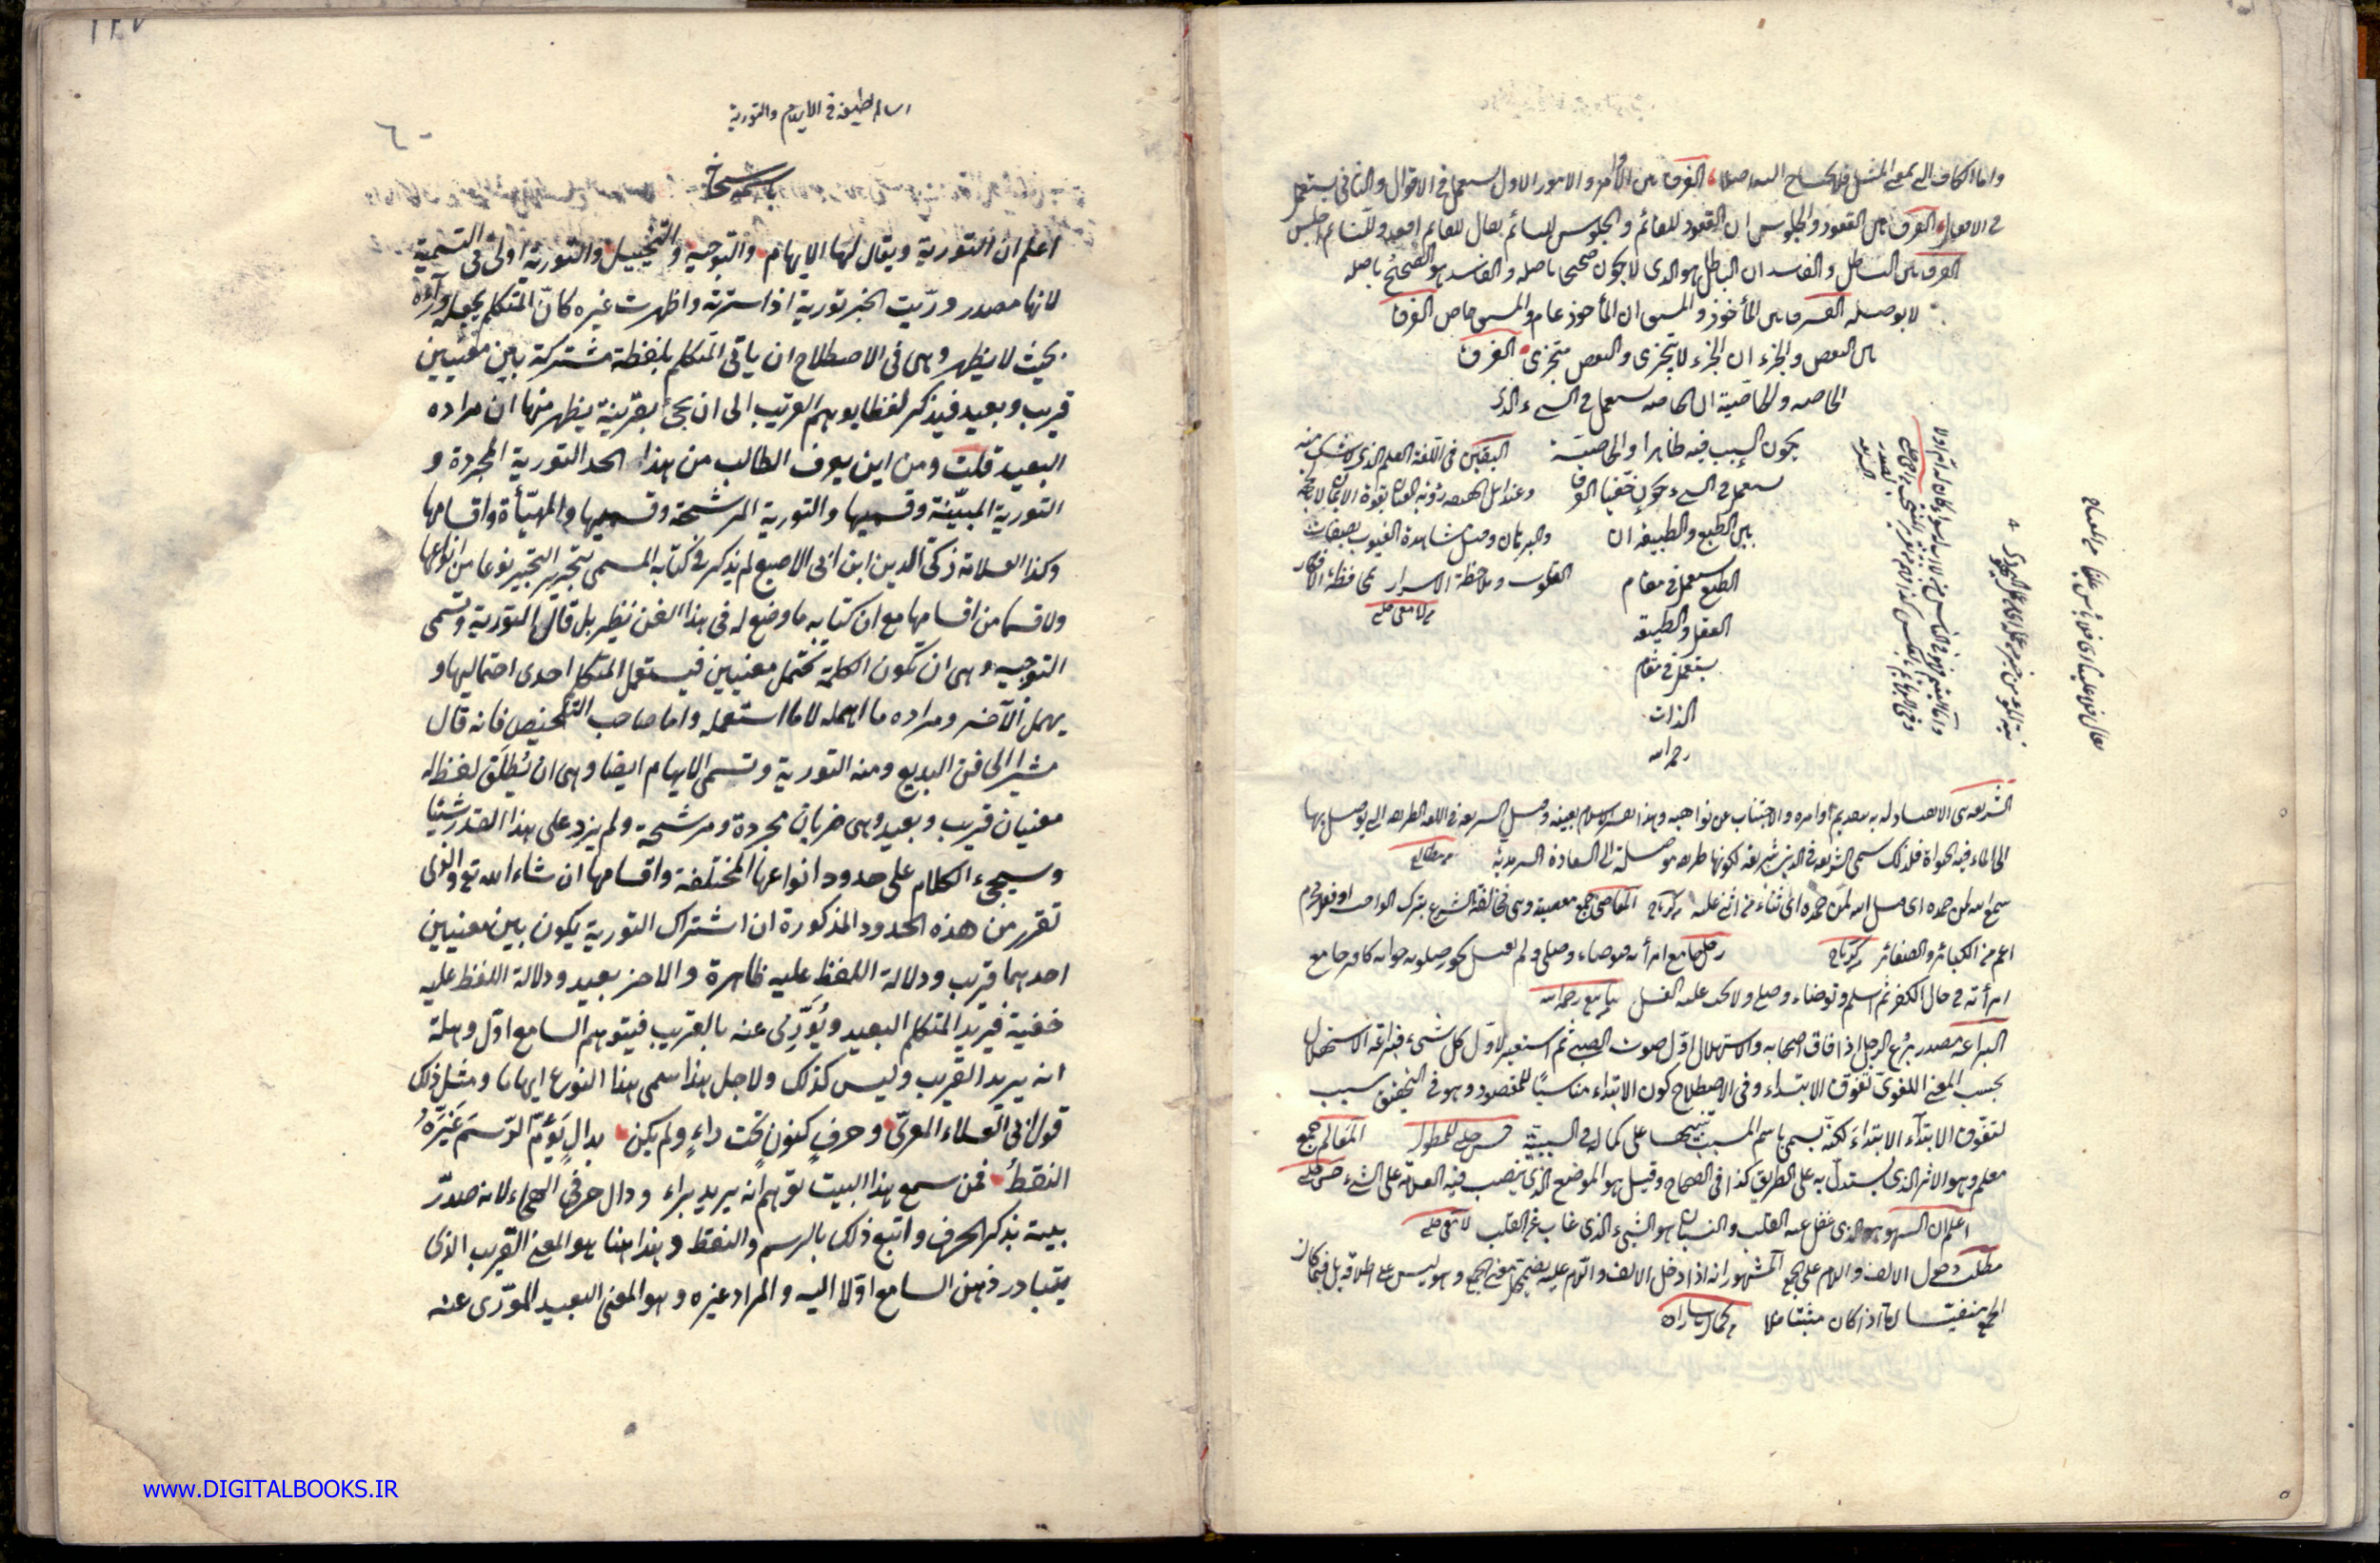 واما الكاف التى بمعنى المثل فلا يحتاج اليه اصلا الفرق بين الأوامر والامور الاول يستعمل فى الاقوال والثانى يستعمل
فى الافعال الفرق بين القعود والجلوس ان القعود للقائم والجلوس للنائم يقال للقائم اقعد وللنائم اجلس
الفرق بين الباطل والفاسد ان الباطل هو الذى لا يكون صحيحا باصله والفاسد هو الصحيح باصله
لا بوصفه الفرق بين المأخوذ و ان المأخوذ عام و خاص الفرق
بين البعض والجزء ان الجزء لا يتجزى والبعض متجزى الفرق
الخاصه والخاصّية ان الخاصه يستعمل فى الشىء الذى
يكون السبب فيه ظاهرا والخاصيّة
يستعمل فى الشىء يكون خفيا الفرق
بين الطبع والطبيعة ان
الطبع يستعمل فى مقام
العقل والطبيعة
يستعمل فى مقام
الذات
رحمه الله
اليقين فى اللغة العلم الذى لا شك منه
وعند اهل رؤية العيان بقوة الايمان لا بالحجة
والبرهان وقيل مشاهدة الغيوب بصفات
القلوب وملاحظة الاسرار بمحافظة الافكار
نية المؤمن خير من عمله
يقال فلان علينا اى فلان
الشريعة هى الاوامره والاجتناب عن نواهيه وهذا بعينه وقيل الشريعة فى اللغة الطريقة التى يوصل بها
الى الماء فيه الحيوة فلذلك سمى الشريعة فى الدين شريعة لكونها طريقة موصلة الى السعادة السرمدية
سمع الله لمن حمده اى قبل الله لمن حمده اى ثناء من اثنى عليه المعاصى جمع معصية وهى مخالفة الشرع بترك الواجب او فعل محرم
اعم من الكبائر والصغائر رجل جامع امرأته فتوضاء وصلى ولم يغسل يجوز صلوته جوابه كافر جامع
امرأته فى حال الكفر ثم اسلم وتوضاء وصلى ولا يجب عليه الغسل
البراعة مصدر برع الرجل اذا فاق اصحابه والاستهلال اول صوت الصبى ثم استعير لاول كل شىء فبراعة الاستهلال
بحسب المعنى اللغوى تفوق الابتداء وفى الاصطلاح كون الابتداء مناسبًا للمقصود وهو فى التحقيق سبب
لتفوق الابتداء الابتداء لكنه يسمى باسم المسبب تنبيها على كماله فى السببية المعالم جمع
معلم وهو الاثر الذى يستدل به على الطريق كذا فى الصحاح وقيل هو الموضع الذى ينصب فيه العلامة على الشىء
اعلم ان السهو هو الذى غفل عنه القلب والنسيان هو الشىء الذى غاب عن القلب
مطلب دخول الالف واللام على الجمع المشهور انه اذا دخل الالف واللام عليه يضمحل معنى الجمع وهو ليس على اطلاقه بل فيما كان
الجمع منفيّا لا اذا كان مثبتا
١٢٧
٦٠
رسالة لطيفة فى الايهام والتورية
باسمه سبحانه
اعلم ان التورية ويقال لها الايهام والتوجيه والتخييل والتورية اولى فى التسمية
لانها مصدر ورّيت الخبر تورية اذا سترته واظهرت غيره كانّ المتكلم يجعله ورآءه
بحيث لا يظهر وهى فى الاصطلاح ان ياتى المتكلم بلفظة مشتركة بين معنيين
قريب وبعيد فيذكر لفظا يوهم القريب الى ان يجئ بقرينة يظهر منها ان مراده
البعيد قلت ومن اين يعرف الطالب من هذا الحد التورية المجردة و
التورية المبيّنة وقسميها والتورية المرشحة وقسميها والمهيّأة واقسامها
وكذا العلامة زكى الدين ابن ابى الاصبع لم يذكر فى كتابه المسمى بتحرير التحبير نوعا من انواعها
ولا قسما من اقسامها مع ان كتابه ما وضع له فى هذا الفن نظير بل قال التورية وتسمى
التوجيه وهى ان تكون الكلمة تحتمل معنيين فيستعمل المتكلم احدى احتماليها و
يهمل الآخر ومراده ما اهمله لا ما استعمله واما صاحب التلخيص فانه قال
مشيرا الى فن البديع ومنه التورية وتسمى الايهام ايضا وهى ان يُطلَق لفظ له
معنيان قريب وبعيد وهى ضربان مجردة ومرشحة ولم يزد على هذا القدر شيئا
وسيجىء الكلام على حدود انواعها المختلفة واقسامها ان شاء الله تع والذى
تقرر من هذه الحدود المذكورة ان اشتراك التورية يكون بين معنيين
احدهما قريب ودلالة اللفظ عليه ظاهرة والاخر بعيد ودلالة اللفظ عليه
خفية فيريد المتكلم البعيد ويُوَرِّى عنه بالقريب فيتوهم السامع اوّل وهلة
انه يريد القريب وليس كذلك ولاجل هذا سمى هذا النوع ايهاما ومثل ذلك
قول ابى العلاء المعرى وحرفٍ كنونٍ تحت راءٍ ولم يكن بدالٍ يَؤُمّ الرّسمَ غَيّرَهُ
النقطُ فمن سمع هذا البيت توهم انه يريد براء ودال حرفى الهجاء لانه صدّر
بيته بذكر الحرف واتبع ذلك بالرسم والنقط وهذا هنا هو المعنى القريب الذى
يتبادر ذهن السامع اوّلا اليه والمراد غيره وهو المعنى البعيد المورّى عنه
www.DIGITALBOOKS.IR